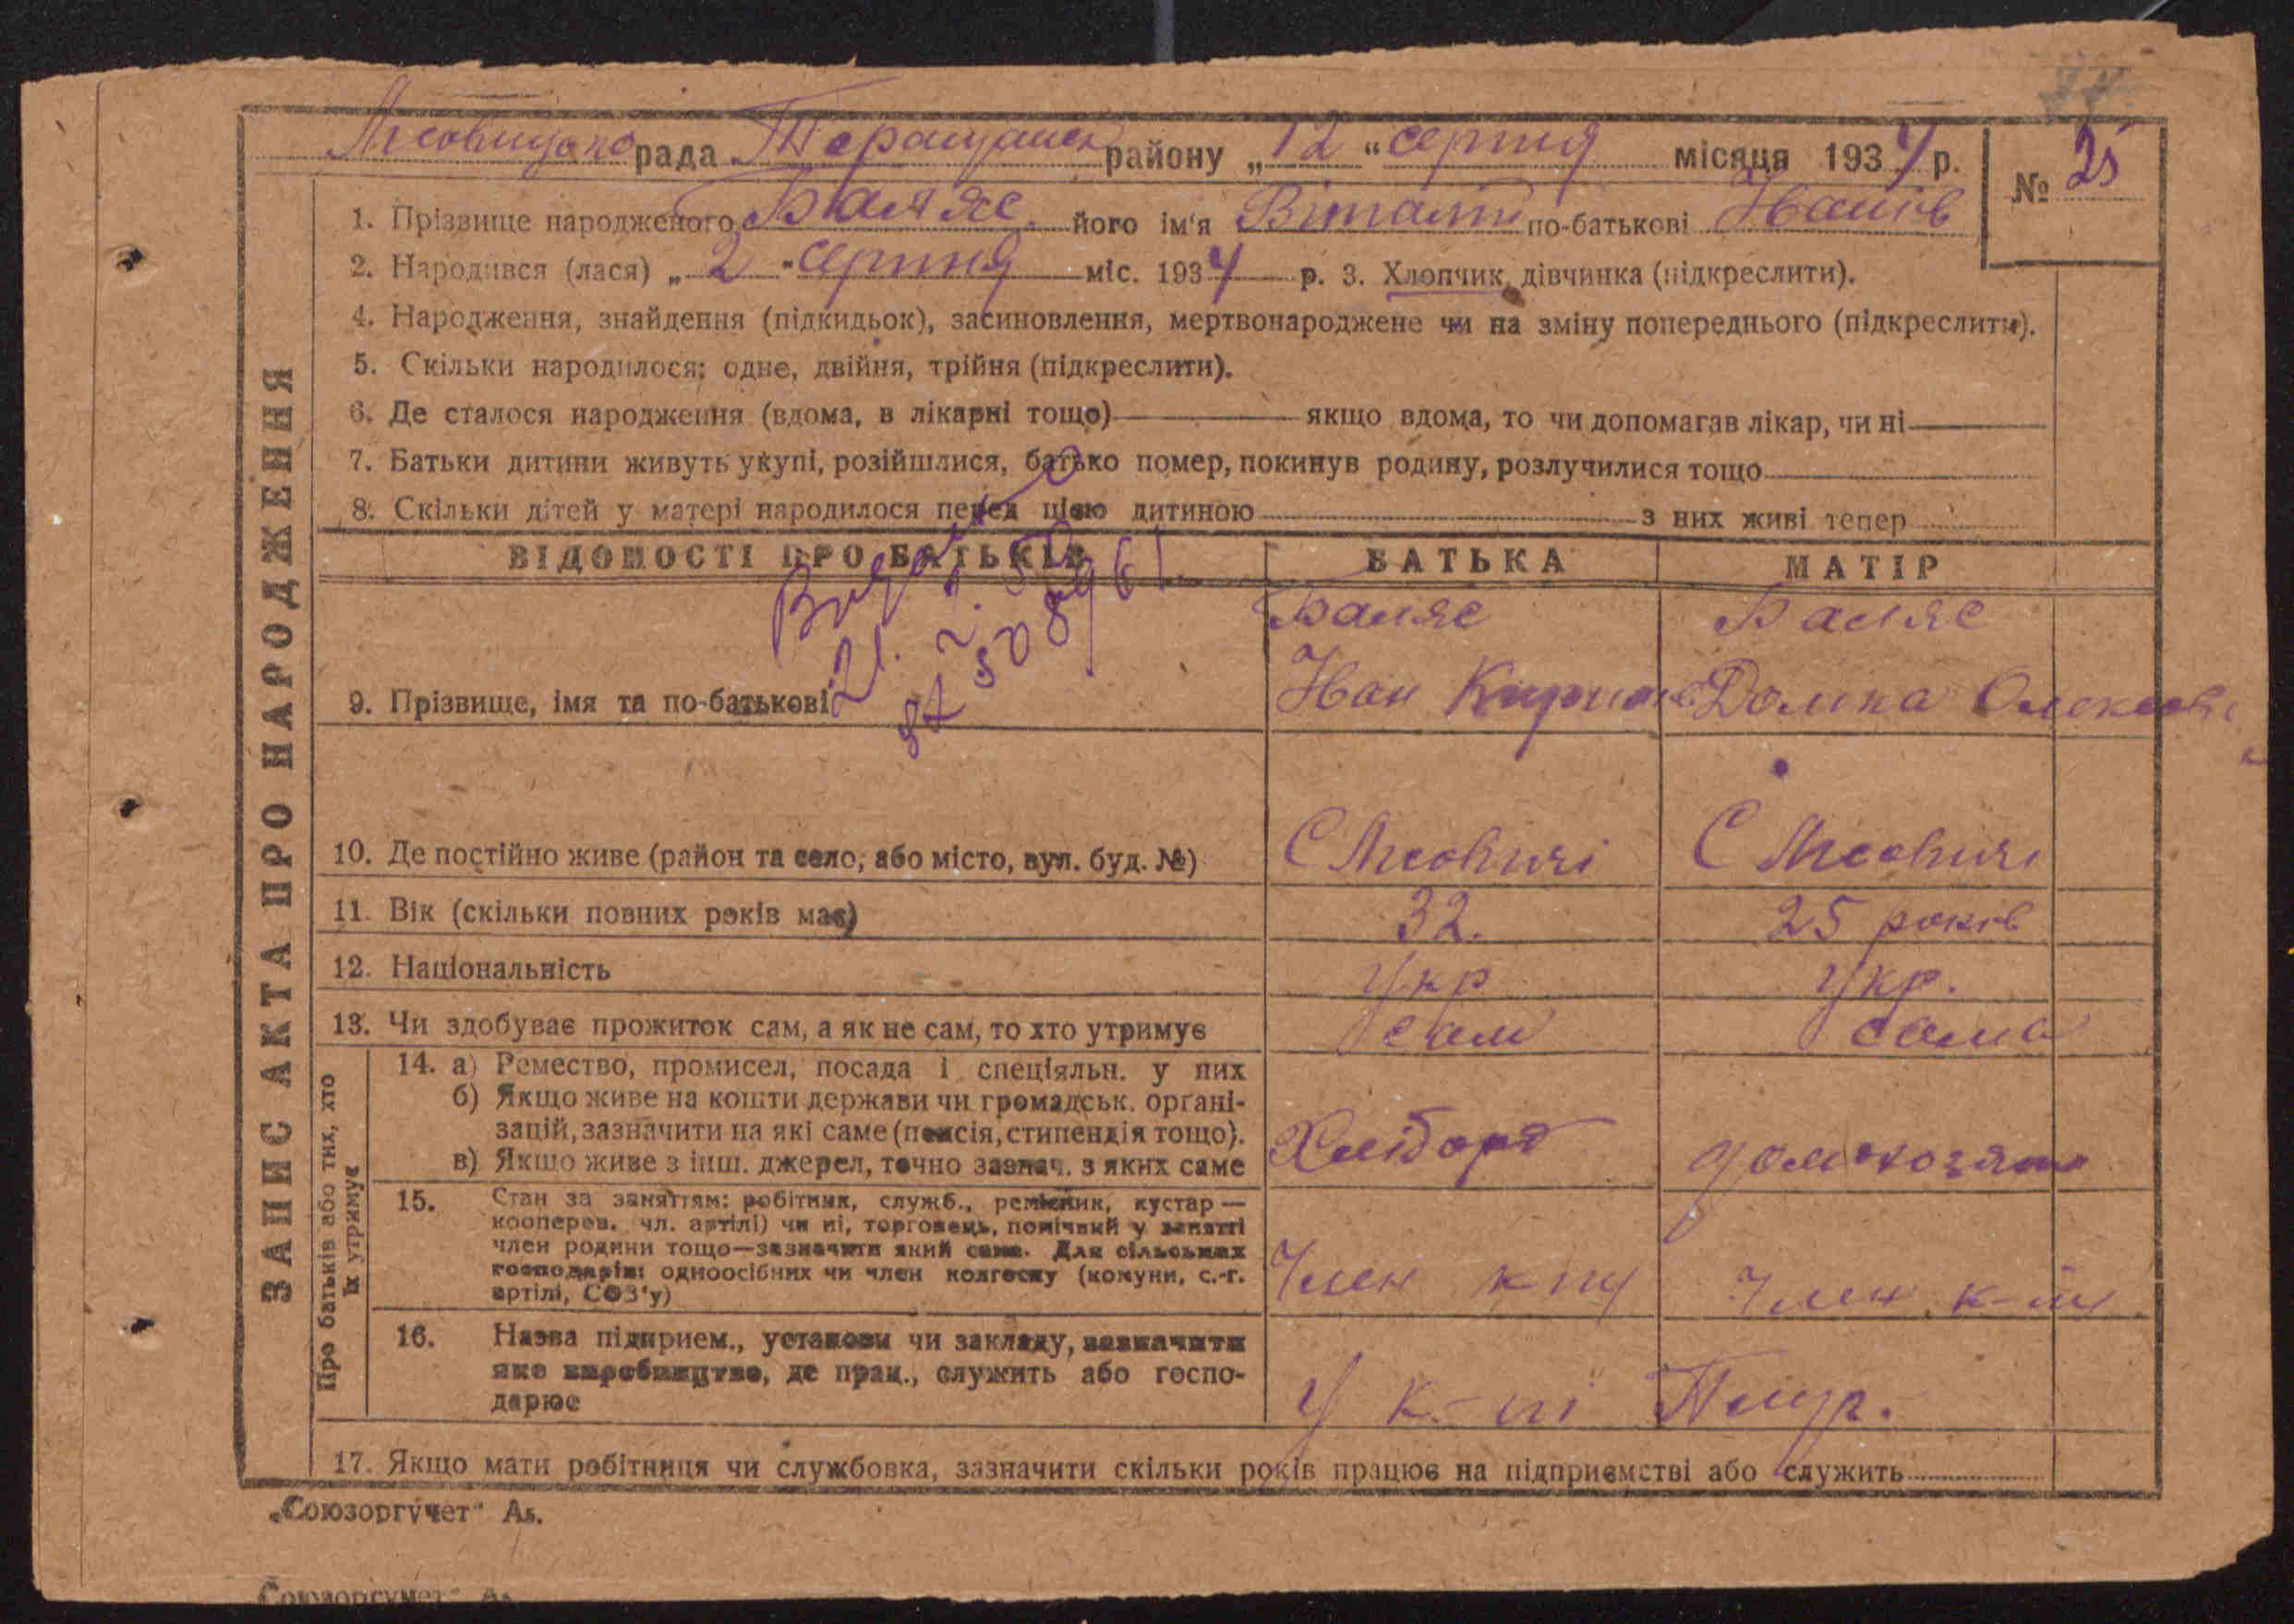 рада Таращанськ району „12“ серпня місяця 1934 р. № 25
1. Прізвище народженого Баляс його ім'я Віталій по-батькові Іванів
2. Народився (лася) „2“ серпня міс. 1934 р. 3. Хлопчик, дівчинка (підкреслити).
4. Народження, знайдення (підкидьок), засиновлення, мертвонароджене чи на зміну попереднього (підкреслити).
5. Скільки народилося: одне, двійня, трійня (підкреслити).
6. Де сталося народження (вдома, в лікарні тощо) якщо вдома, то чи допомагав лікар, чи ні
7. Батьки дитини живуть укупі, розійшлися, батько помер, покинув родину, розлучилися тощо
8. Скільки дітей у матері народилося перед цією дитиною з них живі тепер
ЗАПИС АКТА ПРО НАРОДЖЕННЯ
ВІДОМОСТІ ПРО БАТЬКІВ БАТЬКА МАТІР
Баляс Баляс
9. Прізвище, імя та по-батькові Іван Доліна
10. Де постійно живе (район та село, або місто, вул. буд. №) С Лісовичі С Лісовичі
11. Вік (скільки повних років має) 32. 25 років
12. Національність Укр Укр.
13. Чи здобуває прожиток сам, а як не сам, то хто утримує сам сама
Про батьків або тих, хто їх утримує
14. а) Ремество, промисел, посада і спеціяльн. у них
б) Якщо живе на кошти держави чи громадськ. орґані-
зацій, зазначити на які саме (пенсія, стипендія тощо).
в) Якщо живе з інш. джерел, точно зазнач. з яких саме Хлібороб
15. Стан за заняттям: робітник, служб., ремісник, кустар —
кооперов. чл. артілі) чи ні, торговець, помічний у занятті
член родини тощо—зазначити який саме. Для сільських
господарів: одноосібних чи член колгоспу (комуни, с.-г.
артілі, СОЗ'у) Член к-пу Член к-пу
16. Назва підприєм., установи чи закладу, зазначити
яке виробництво, де прац., служить або госпо-
дарює У к-пі
17. Якщо мати робітниця чи службовка, зазначити скільки років працює на підприємстві або служить
„Союзоргучет“
„Союзоргучет“